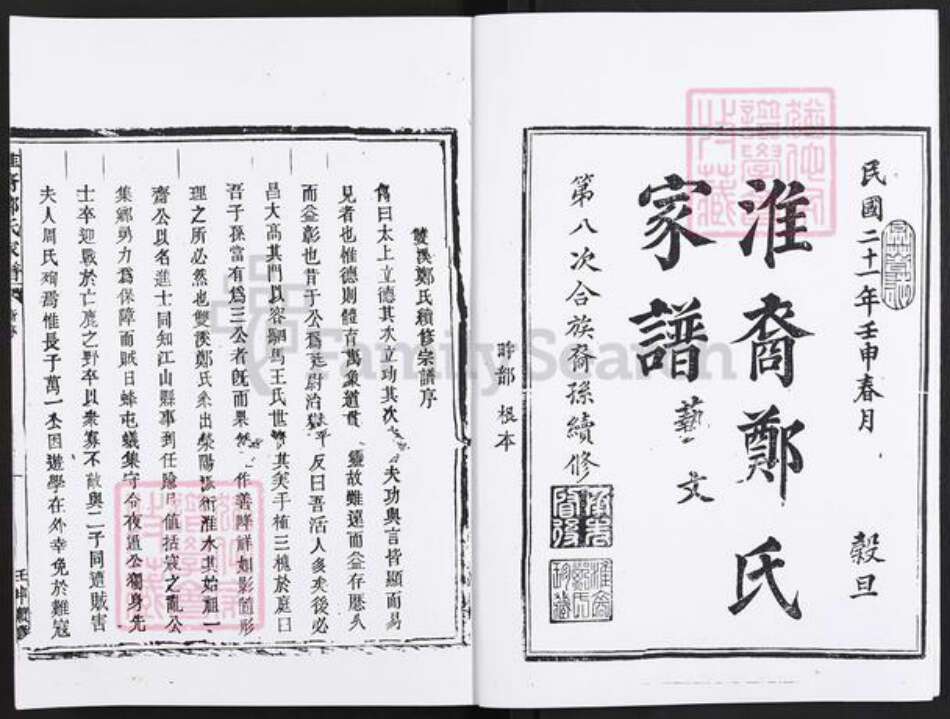 民國二十一年壬申春月 穀旦
淮裔鄭氏
家譜 藝文
第八次合族裔孫續修
盱郡 根本
雙溪鄭氏續修宗譜序
傳曰太上立德其次立功其次 夫功與言皆顯而易
見者也惟德則體育萬象道貫 靈故雖遠而益存愿久
而益彰也昔于公為廷尉治獄平反曰吾活人多矣後必
昌大高其門以容駟馬王氏世 其美手植三槐於庭曰
吾子孫當有為三公者旣而果然 作善降祥如影隨形
理之所必然也雙溪鄭氏系出滎陽派衍淮水其始祖一
齋公以名進士同知江山縣事到任 值括寇之亂公
集鄉勇力為保障而賊日蜂屯蟻集守令夜遁公獨身先
士卒迎戰於亡鹿之野卒以衆寡不敵與二子同遭賊害
夫人周氏殉焉惟長子萬一公因遊學在外幸免於難寇
FamilySearch